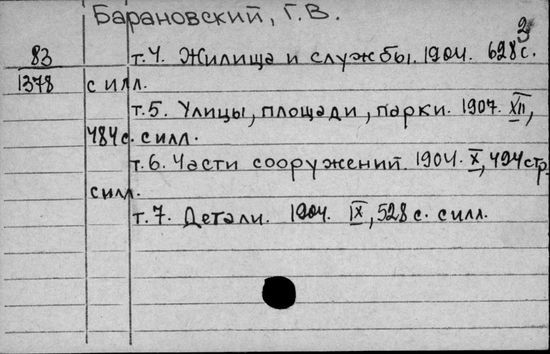 Барановский, Г.В.
2
83
1378
т.4. Жилища и службы. 1904. 628 с.
с илл.
т.5. Улицы, площади, парки. 1907. XII,
484 с. с илл.
т.6. Части сооружений. 1904. X, 494 стр.
с илл.
т.7. Детали. 1904. IX, 528 с. с илл.